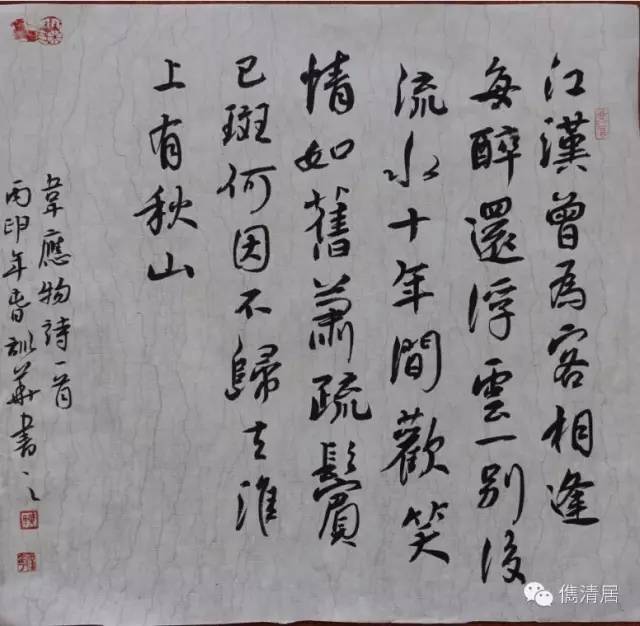 江漢曾為客相逢
每醉還浮雲一別後
流水十年間歡笑
情如舊蕭疏鬢
已斑何因不歸去淮
上有秋山
韋應物詩一首
丙申年春華書
儁清居